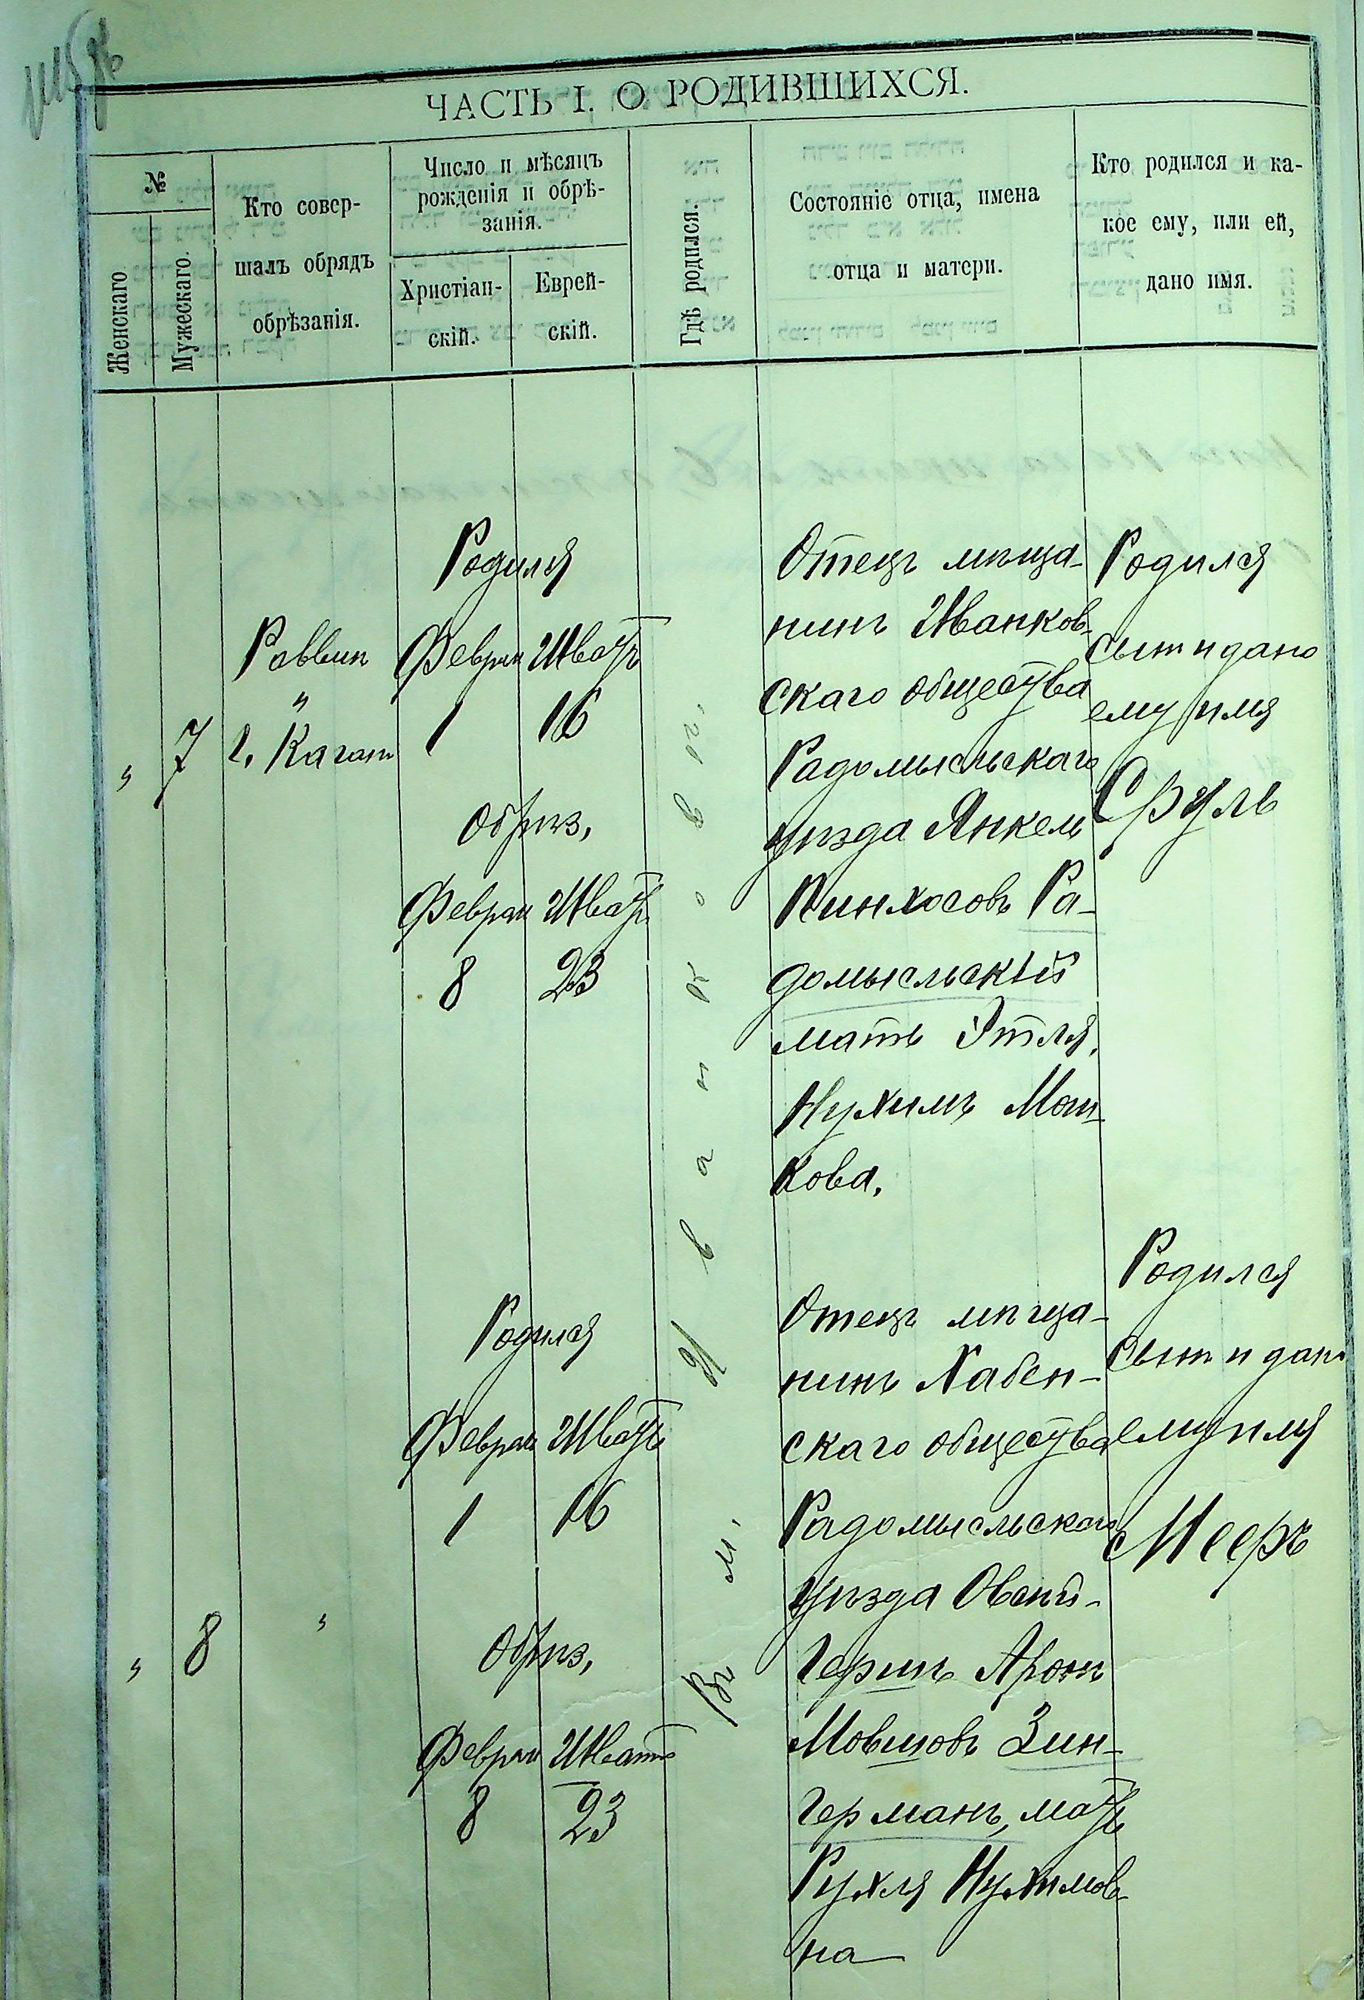 ЧАСТЬ I. О РОДИВШИХСЯ.
№
Женскаго
Мужескаго.
Кто совер-
шалъ обрядъ
обрѣзанія.
Число и мѣсяцъ
рожденія и обрѣ-
занія.
Христіан-
скій.
Еврей-
скій.
Гдѣ родился.
Состояніе отца, имена
отца и матери.
Кто родился и ка-
кое ему, или ей,
дано имя.
"
7
Раввин
"
г. Каган
Родился
Феврал Шватъ
1 16
Обрѣз,
Феврал Шватъ
8 23
Въ м. Иванковѣ
Отецъ мѣща-
нинъ Иванков-
скаго общества
Радомысльскаго
уѣзда Янкель
Пинхосовъ Ра-
домысльскій
мать Этля,
Нухимъ Мош-
кова.
Родился
сынъ и дано
ему имя
Сруль
"
8
"
Родился
Феврал Шватъ
1 16
Обрѣз,
Феврал Шватъ
8 23
Отецъ мѣща-
нинъ Хабен-
скаго общества
Радомысльскаго
уѣзда Овсей-
Герш Арон
Мовшовъ Зин-
германъ, мать
Рухля Нухимов-
на
Родился
сынъ и дано
ему имя
Мееръ